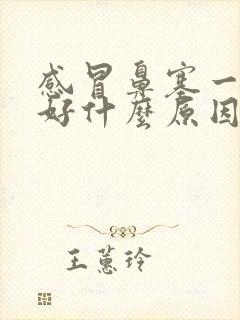 感冒鼻塞一
好什麼原因
王蕙玲